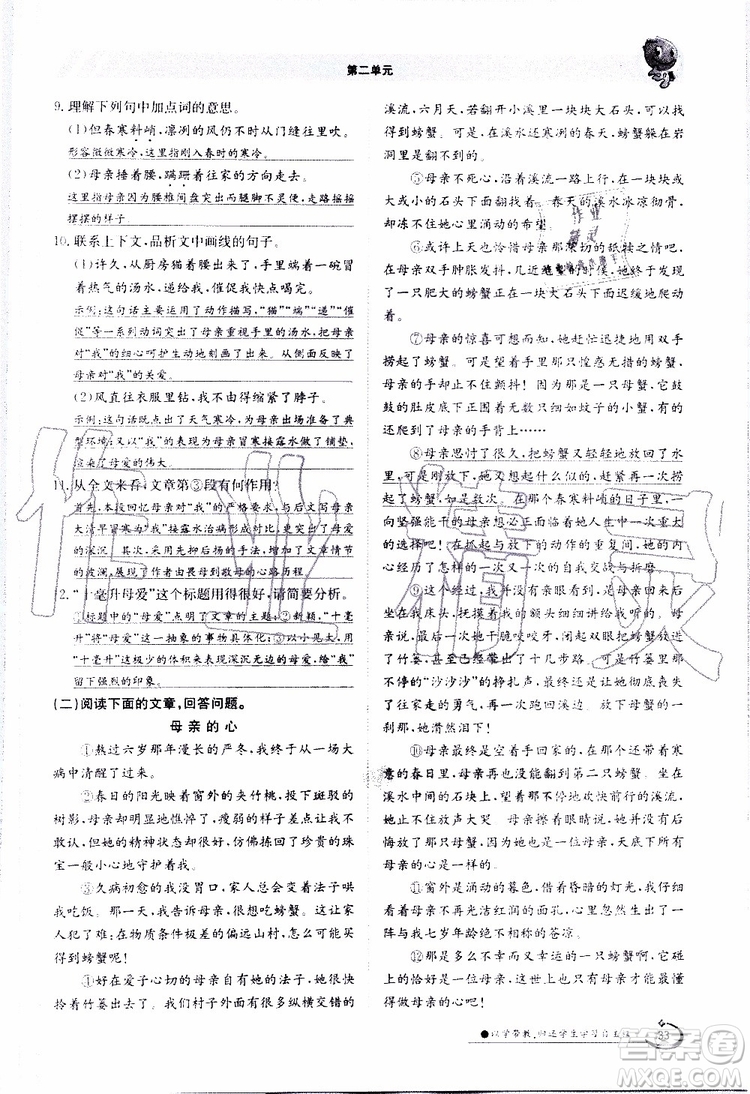 第二单元
9. 理解下列句中加点词的意思。
(1)但春寒料峭,凛冽的风仍不时从门缝往里吹。
形容微微寒冷,这里指刚入春时的寒冷。
(2)母亲捶着腰,蹒跚着往家的方向走去。
这里指母亲因为腰椎间盘突出而腿脚不灵便,走路摇摇
摆摆的样子。
10. 联系上下文,品析文中画线的句子。
(1)许久,从厨房猫着腰出来,手里端着一碗冒
着热气的汤水,递给我,催促我快点喝完。
示例:这句话主要运用了动作描写,“猫”“端”“递”“催
促”等一系列动词突出了母亲重视手里的汤水,将母
亲对“我”的细心呵护生动地刻画了出来,从侧面反映了母
亲对“我”的关爱。
(2)风直往衣服里钻,他们都得缩紧了脖子。
示例:这句话既点出了天气寒冷,为母亲的出场准备了典
型环境;又以“我”的表现为母亲冒寒接露水做了铺垫,
渲染了母爱的伟大。
11. 从全文来看,文章第③段有何作用?
首先,本段回忆母亲对“我”的严格要求,与后文母亲
大清早冒寒为“我”接露水治病形成对比,突出了母爱
的深沉。其次,采用先抑后扬的手法,增强了文章情节
的波澜,展现了作者由畏母到敬母的心路历程。
2. “十毫升母爱”这个标题用得很好,请简要分析。
①标题中的“母爱”点明了文章的主题;②新颖,“十毫
升”将“母爱”这一抽象的事物具体化;③以小见大,以
“十毫升”这么少的体积来表现深沉无边的母爱,给人
留下强烈的印象。
(二)阅读下面的文章,回答问题。
母亲的心
①熬过六岁那年漫长的严冬,我终于从一场大
病中清醒了过来。
②春日的阳光映着窗外的夹竹桃,投下斑驳的
树影,母亲明显地憔悴了。瘦弱的身子也大不如以
前,但她的精神状态却很好,仿佛拣回了珍贵的珠
宝一般小心地守护着我。
③久病初愈的我没有胃口,家人总变着法子哄
我吃饭。那一天,我告诉母亲,我想吃螃蟹。这可让
家人犯了难;在物质条件极差的偏远山村,打哪儿
去弄螃蟹呢?
④好在爱子心切的母亲自有她的法子,她很快
拎着竹篓出去了。我们村子外围有几条纵横交错的
溪流,六月天,若翻开小溪里一块块大石头,就可以
找得到螃蟹。可在溪水还寒冽的春天,螃蟹躲在岩
洞里是翻不到的。
⑤母亲不死心,沿着溪流一路上行,一块块或
大或小的石头下去翻找着。春天的溪水冰凉彻骨,
却冻不住她心里涌动的希望。
⑥或许上天也怜惜母亲那份浓浓的舐犊之情吧,
在母亲双手肿胀发抖、几近绝望的时候,她终于发现
了一只肥大的螃蟹在一块大石下面迟缓地爬着。
⑦母亲的惊喜可想而知,她忙不迭地用双手
捞起了螃蟹。一刹那间,那只惶惑不安的螃蟹却让
母亲的手却立刻颤抖起来了,那是一只母蟹,它鼓
鼓的肚皮底下满是一只只细如蚊子的小蟹。有的
还爬到了母亲的手背上……
⑧母亲怔了怔,把螃蟹又轻轻地放回了水
里,可是刚放下,她又像突然想起什么,赶紧把它捞
起来,紧握在手中!在那个春寒料峭的日子里,一
向坚强能干的母亲想必正面临着她人生中一次重大
的选择吧!在抓起与放下的动作的重复间,她的内
心已经历了一次又一次的自我交战与折磨。
⑨这一切我并没有亲眼看到,只在后来母亲坐
在我床头,抚摸着我的额头细细讲给我听的。母
亲说,最后一次她干脆咬咬牙,闭起双眼把螃蟹放进
了竹篓,甚至已经走出了十几步路。可是竹篓里那
不停的“沙沙沙”的挣扎声,最终还是让她失去了继
续往家走的勇气,只好又走回溪边。放下母蟹的一
刹那,她怅然泪下!
⑩母亲当然是空着手回家的,她不可能在还带着寒
意的春日里,那么幸运地翻到第二只螃蟹。坐在
溪水中间的石块上,望着不停欢快奔流的溪流,她忍
不住放声大哭了一场。母亲擦着眼睛说,她并不是
后悔放了那只螃蟹。因为同样身为母亲,天底下哪
有不相怜的母亲呢?
⑪窗外是涌动的暮色,借着昏暗的灯光,我仔
细看着母亲不再光洁红润的面孔,心里突然涌起了一
阵与我七岁年龄绝不相称的苍凉。
⑫那是一只不幸而又幸运的螃蟹啊,它碰
上的恰好是一位母亲,这世上也只有母亲才最懂
得母亲的心了!
●以学带教,归还学生学习自主权
33
作业
精灵
作业精灵
答案卷
MXQE.COM